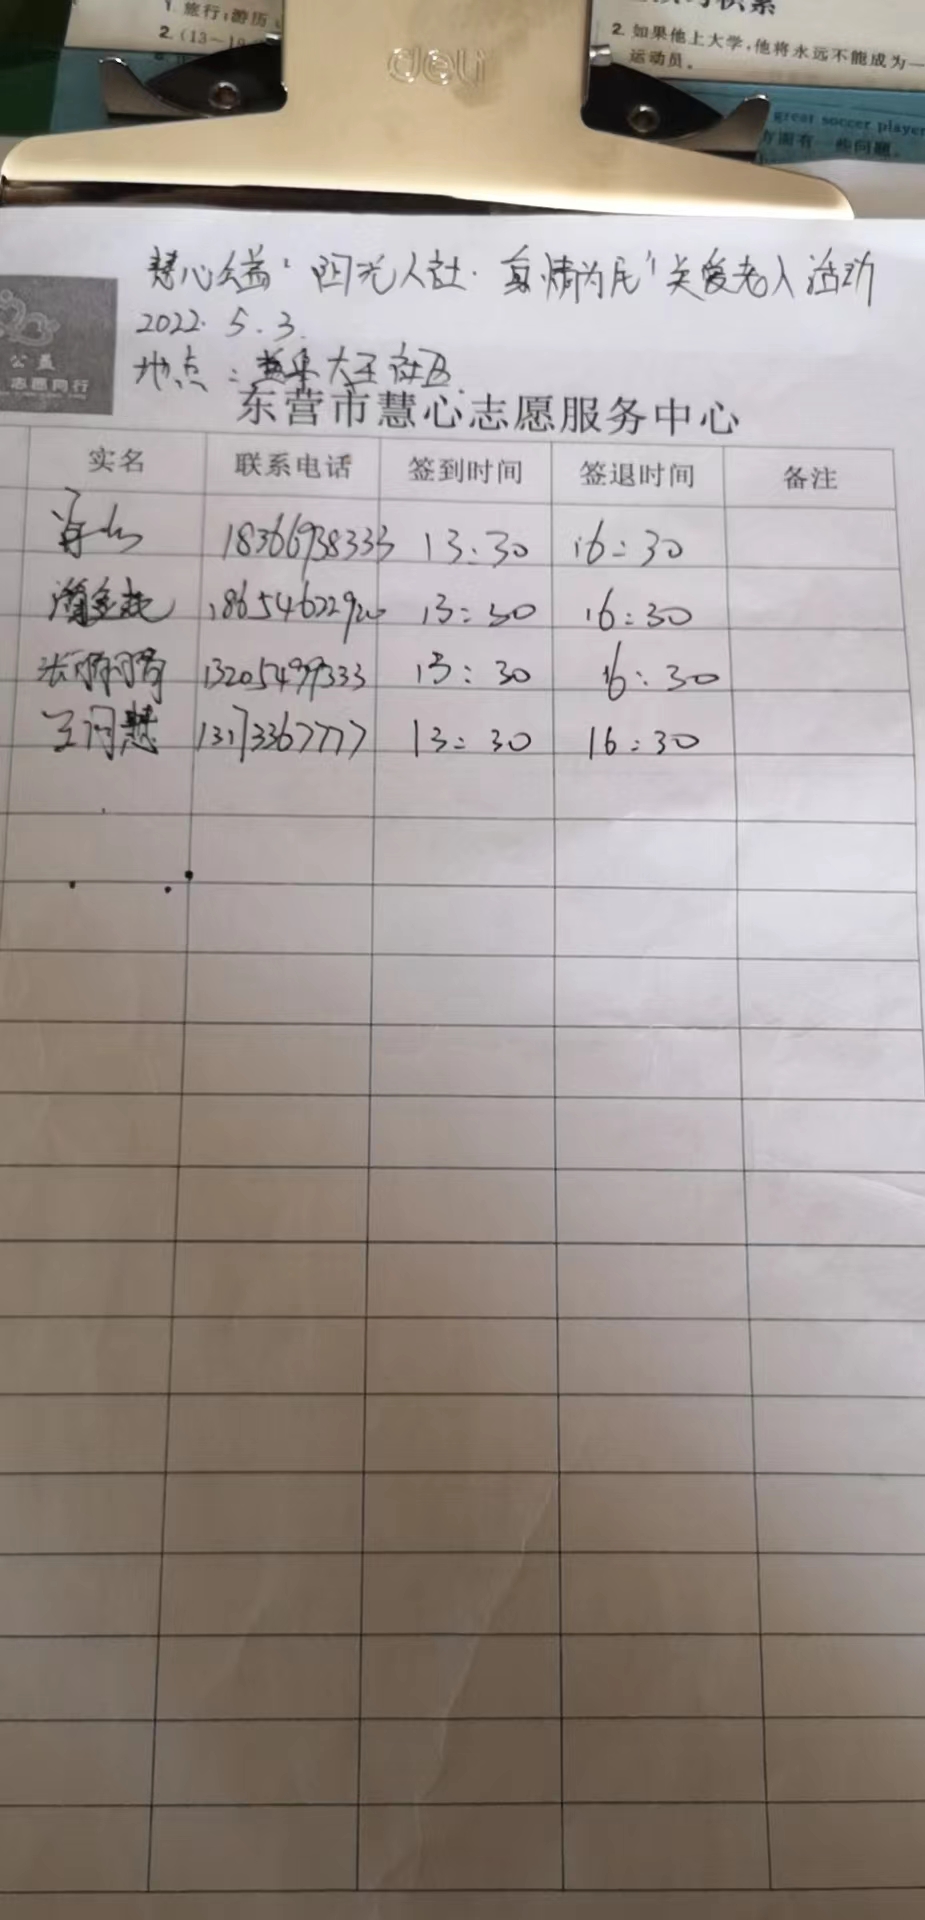 1. 旅行;游历
2. (13~1
积累
2. 如果他上大学,他将永远不能成为一
运动员。
great soccer player
方面有一些问题。
deli
慧心公益"阳光人社·真情为民"关爱老人活动
2022. 5. 3.
地点: 大王社区.
公益
志愿同行
东营市慧心志愿服务中心
实名 联系电话 签到时间 签退时间 备注
18366938333 13:30 16:30
13:30 16:30
13205499333 13:30 16:30
王润慧 13173367777 13:30 16:30